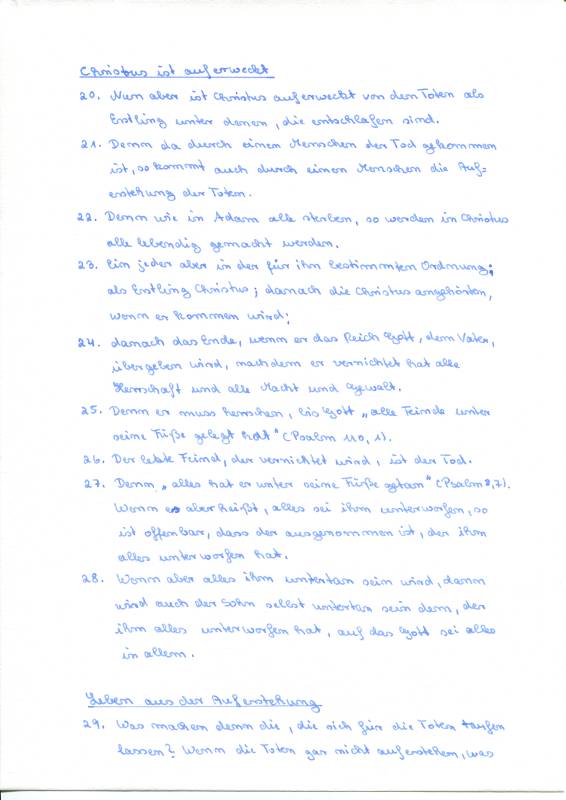 Christus ist auferweckt
20. Nun aber ist Christus auferweckt von den Toten als
Erstling unter denen, die entschlafen sind.
21. Denn da durch einen Menschen der Tod gekommen
ist, so kommt auch durch einen Menschen die Auf=
erstehung der Toten.
22. Denn wie in Adam alle sterben, so werden in Christus
alle lebendig gemacht werden.
23. Ein jeder aber in der für ihn bestimmten Ordnung;
als Erstling Christus; danach die Christus angehörten,
wenn er kommen wird;
24. danach das Ende, wenn er das Reich Gott, dem Vater,
übergeben wird, nachdem er vernichtet hat alle
Herrschaft und alle Macht und Gewalt.
25. Denn er muss herrschen, bis Gott „alle Feinde unter
seine Füße gelegt hat" (Psalm 110, 1).
26. Der letzte Feind, der vernichtet wird, ist der Tod.
27. Denn „alles hat er unter seine Füße getan" (Psalm 8,7).
Wenn es aber heißt, alles sei ihm unterworfen, so
ist offenbar, dass der ausgenommen ist, der ihm
alles unterworfen hat.
28. Wenn aber alles ihm untertan sein wird, dann
wird auch der Sohn selbst untertan sein dem, der
ihm alles unterworfen hat, auf das Gott sei alles
in allem.
Leben aus der Auferstehung
29. Was machen denn die, die sich für die Toten taufen
lassen? Wenn die Toten gar nicht auferstehen, was